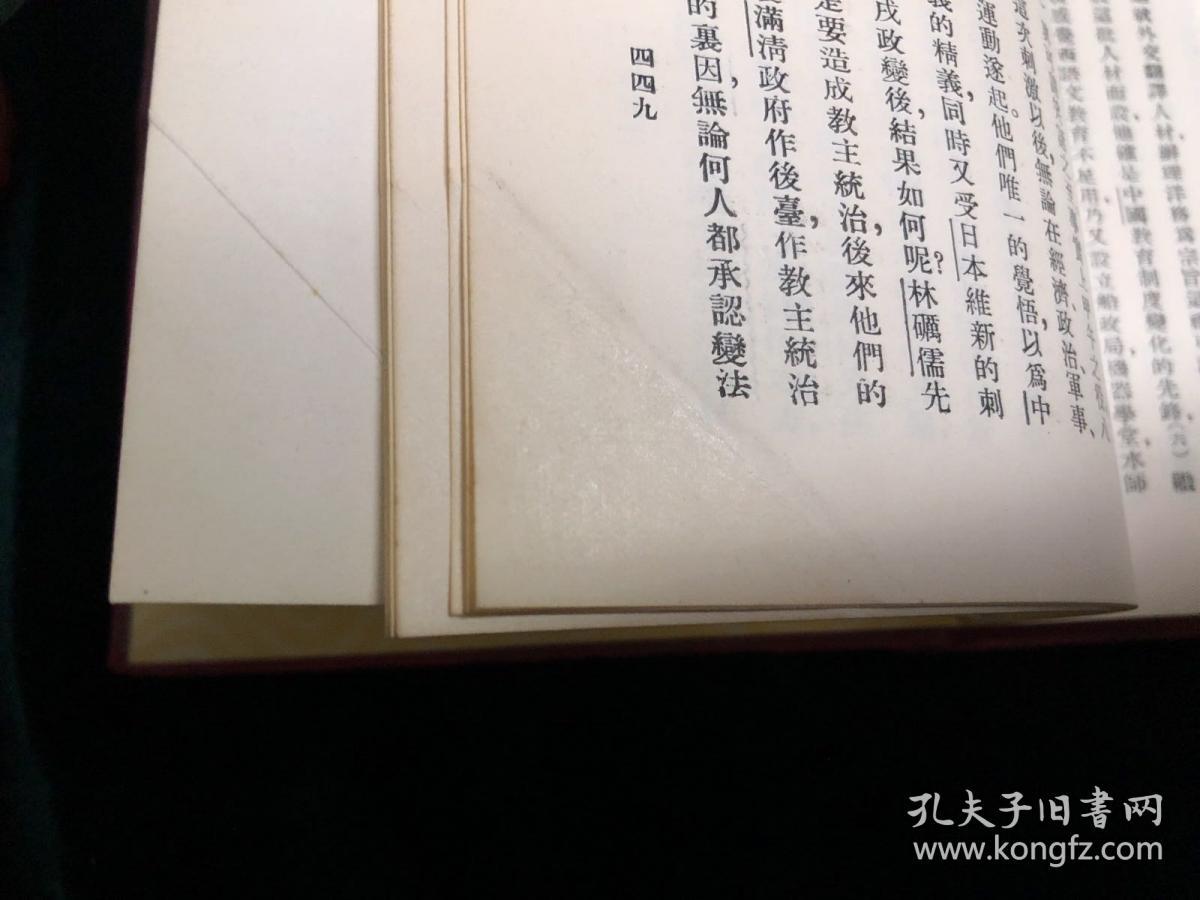 就外交翻譯人材辦理洋務爲宗旨
這批人材而設他確是中國教育制度變化的先鋒(六)繼
西語文教育不足用乃又設立船政局機器學堂水師
這次刺激以後,無論在經濟、政治、軍事、
運動遂起。他們唯一的覺悟,以爲中
義的精義,同時又受日本維新的刺
戌政變後,結果如何呢?林礪儒先
是要造成教主統治,後來他們的
滿清政府作後臺,作教主統治
的裏因,無論何人都承認變法
四四九
孔夫子旧书网
www.kongfz.com